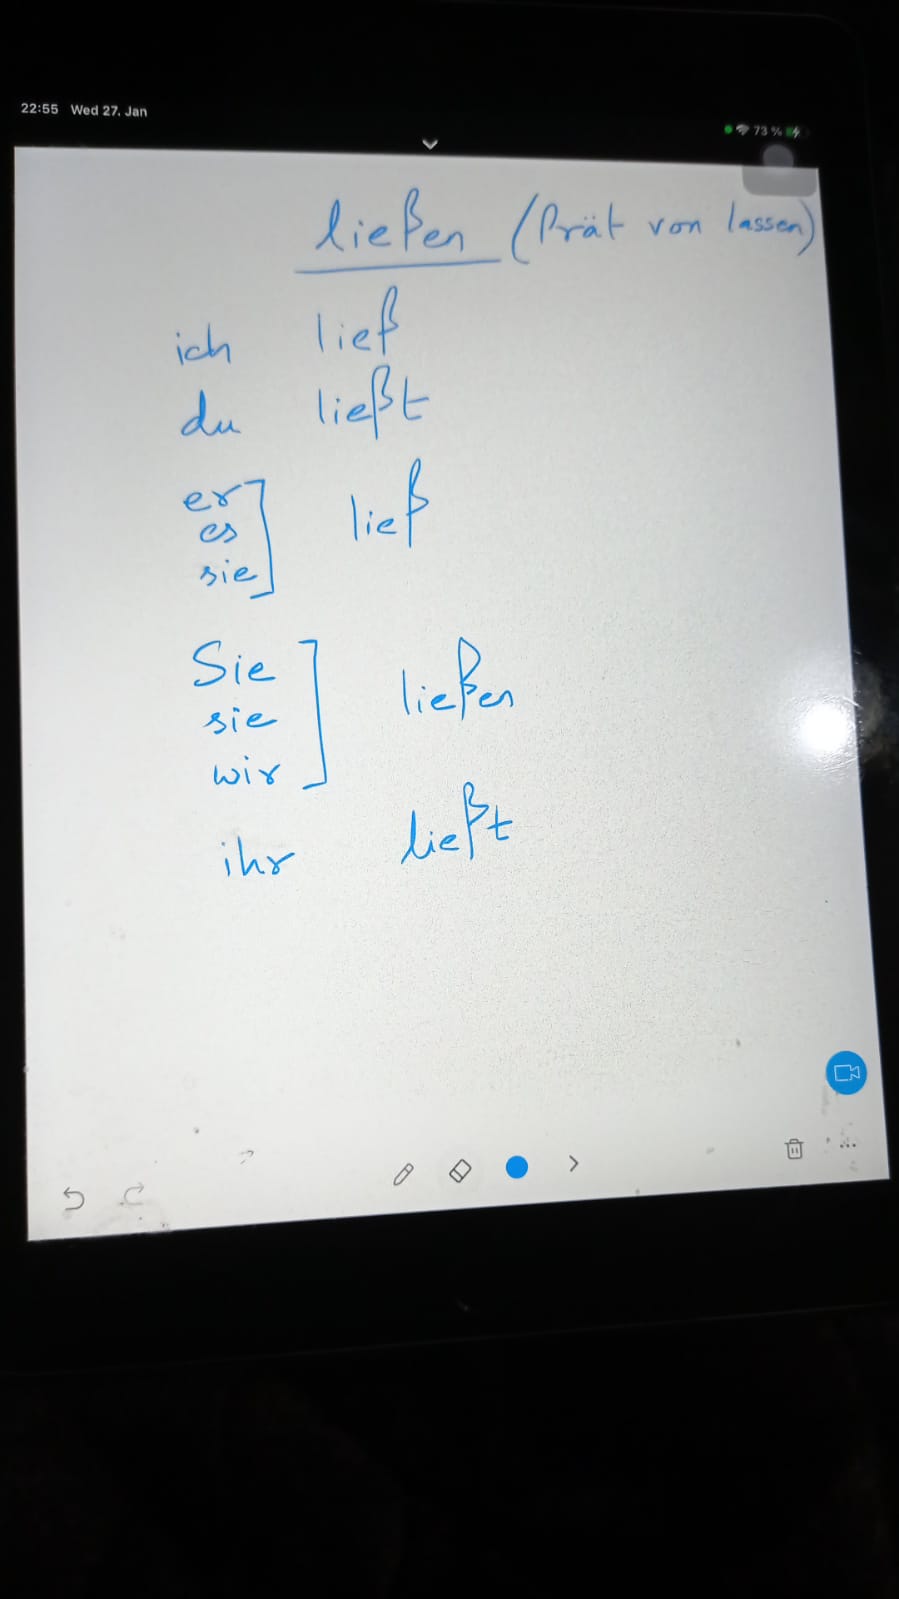 22:55 Wed 27. Jan
73 %
ließen (Prät von lassen)
ich ließ
du ließt
er
es
sie
ließ
Sie
sie
wir
ließen
ihr ließt